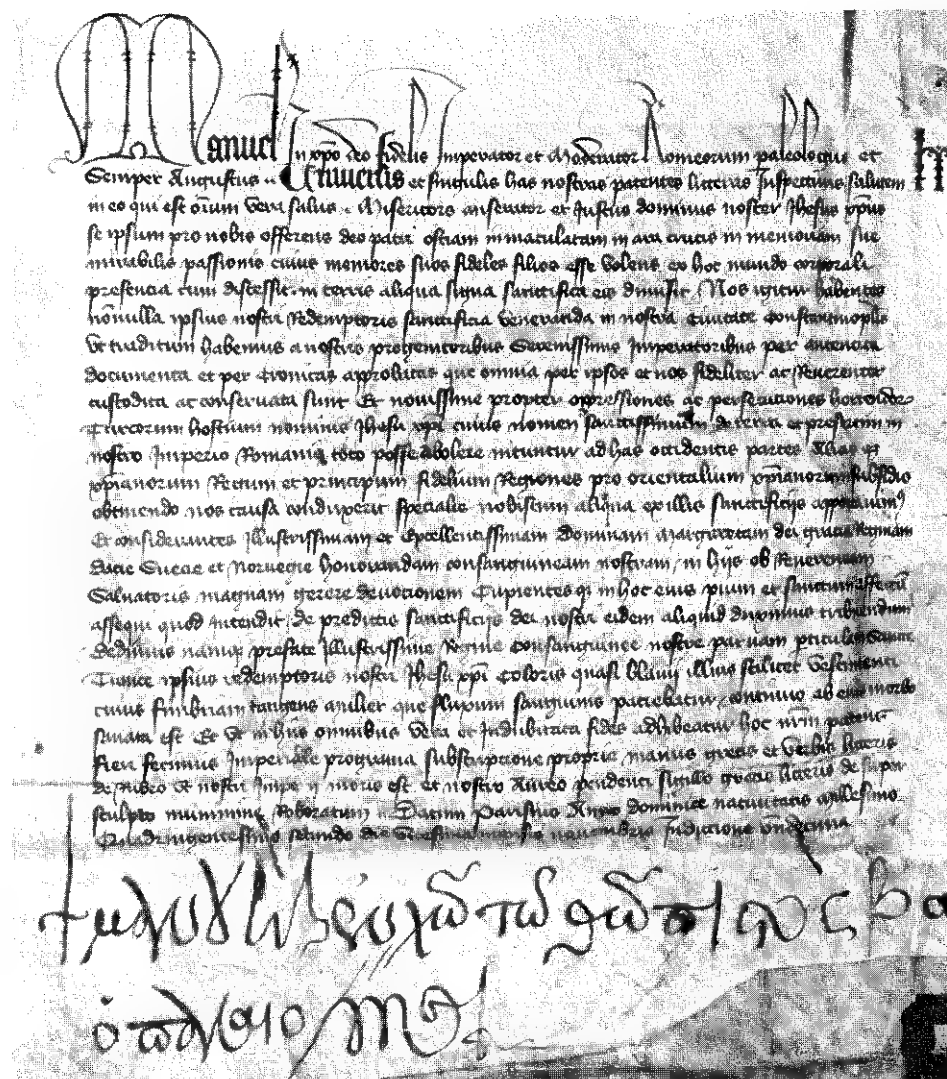 Manuel in xpo deo fidelis Imperator et Moderator Romeorum paleologus et
Semper Augustus Universis et singulis has nostras patentes litteras Inspecturis salutem
in eo qui est oium vera salus Misericors miserator et Iustus dominus noster Ihesus xpus
se ipsum pro nobis offerens deo patri ostiam inmaculatam in ara crucis in memoriam sue
mirabilis passionis cuius memores suos fideles filios esse volens ex hoc mundo corporali
presencia cum discessit in terris aliqua signa sanctifica eis dimisit Nos igitur habentes
nonnulla ipsius nostri Redemptoris sanctificia veneranda in nostra Civitate Constantinopolis
ut traditum habemus a nostris progenitoribus Serenissimis Imperatoribus per autentica
documenta et per Cronicas approbatas que omnia per ipsos et nos fideliter ac Reverenter
custodita ac conservata sunt Et novissime propter oppressiones ac persecutiones
Turcorum hostium nominis Ihesu xpi cuius nomen sanctissimum de terra et presertim in
nostro Imperio Romanie toto posse abolere nituntur ad has occidentis partes Alias
xpianorum Regum et principum fidelium Regiones pro orientalium xpianorum subsidio
obtinendo nos causa conduxerit specialis nobiscum aliqua ex illis sanctificiis
Et considerantes Illustrissimam et Excellentissimam Dominam Margaretam dei gracia Reginam
Dacie Suecie et Norvegie honorandam consanguineam nostram in hiis ob Reverenciam
Salvatoris magnam gerere devocionem Cupientes in hoc eius pium et sanctum
assequi quod Intendit de predictis sanctificiis dei nostri eidem aliquid duximus tribuendum
Dedimus prefate Illustrissime Regine Consanguinee nostre parvam
Tunice ipsius redemptoris nostri Ihesu xpi Coloris quasi blavii illius scilicet vestimenti
cuius fimbriam tangens mulier que fluxum sanguinis paciebatur continuo ab eius morbo
sanata est Et ut in hiis omnibus vera et Indubitata fides adhibeatur hoc nrm patens
fieri fecimus Imperiale subscriptione propria manus grecis et verbis litteris
de Rubeo ut nostri moris est et nostro Aureo pendenti sigillo grecis litteris de super
sculpto Roboratum Datum Parisius Anno dominice nativitatis millesimo
Quadringentesimo secundo die mensis novembris Indictione undecima
ἐν χω τω θω πιστὸς
ὁ παλαιολόγος